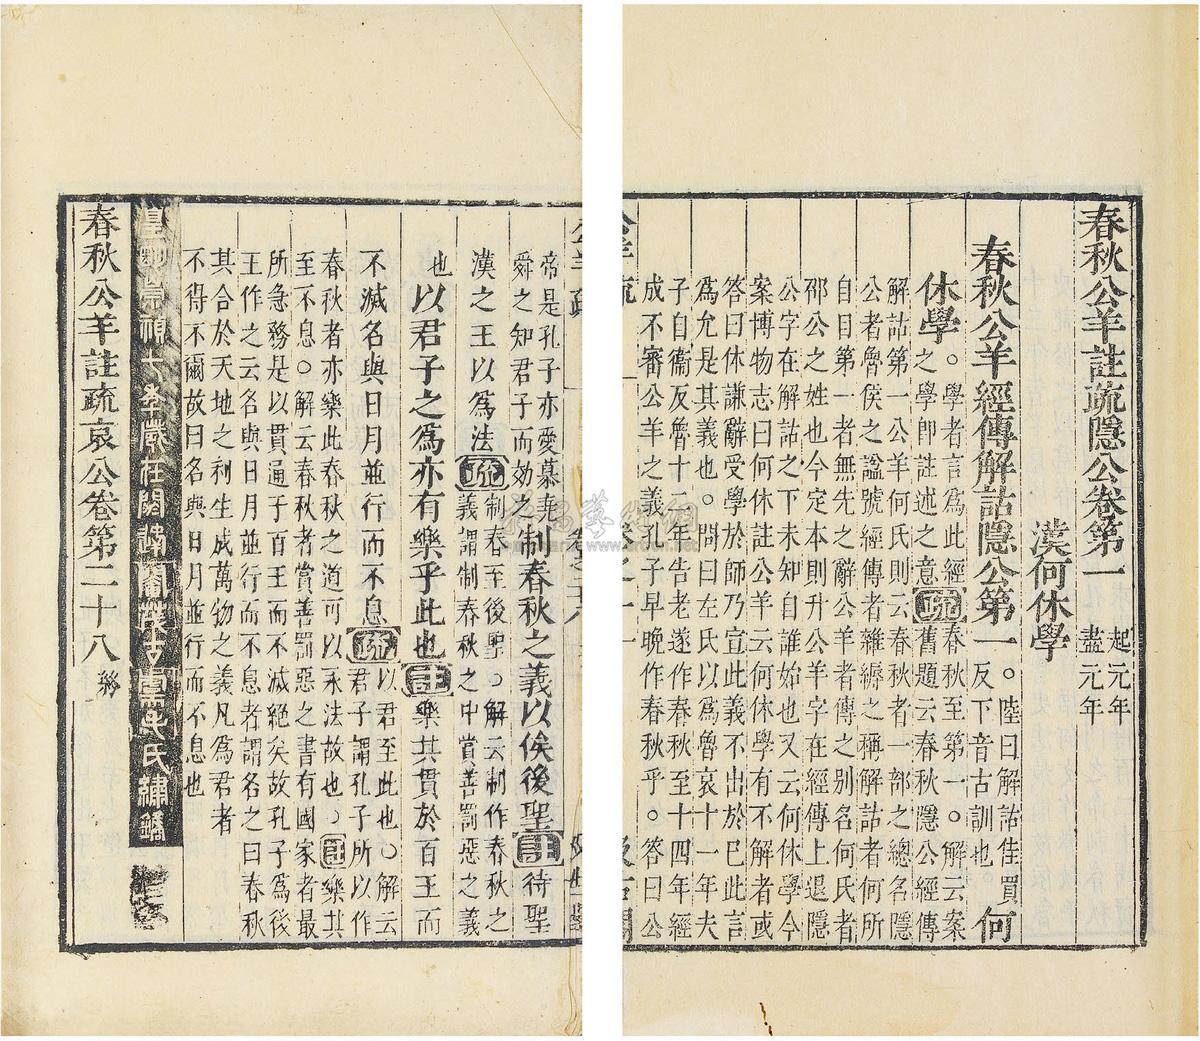 春秋公羊註疏隱公卷第一
起元年
盡元年
漢何休學
春秋公羊經傳解詁隱公第一
。陸曰解詁佳買
反下音古訓也。
何
休學
。學者言爲此經
之學卽註述之意
疏
春秋至第一。解云案
舊題云春秋隱公經傳
解詁第一公羊何氏則云春秋者一部之總名隱
公者魯侯之諡號經傳者雜縟之稱解詁者何所
自目第一者無先之辭公羊者傳之別名何氏者
邵公之姓也今定本則升公羊字在經傳上退隱
公字在解詁之下未知自誰始也又云何休學今
案博物志曰何休註公羊云何休學有不解者或
答曰休謙辭受學於師乃宣此義不出於已此言
爲允是其義也。問曰左氏以爲魯哀十一年夫
子自衞反魯十二年告老遂作春秋至十四年經
成不審公羊之義孔子早晚作春秋乎。答曰公
帝是孔子亦愛慕堯
舜之知君子而効之
制春秋之義以俟後聖
註
待聖
漢之王以爲法
疏
制春至後聖。解云制作春秋之
義謂制春秋之中賞善罰惡之義
也
以君子之爲亦有樂乎此也
註
樂其貫於百王而
不滅名與日月並行而不息
疏
以君至此也。解云
君子謂孔子所以作
春秋者亦樂此春秋之道可以永法故也。
註
樂其
至不息。解云春秋者賞善罰惡之書有國家者最
所急務是以貫通于百王而不滅絕矣故孔子爲後
王作之云名與日月並行而不息者謂名之曰春秋
其合於天地之利生成萬物之義凡爲君者
不得不爾故曰名與日月並行而不息也
皇明崇禎七年歲在閼逢閹茂古虞毛氏繡鐫
春秋公羊註疏哀公卷第二十八
終